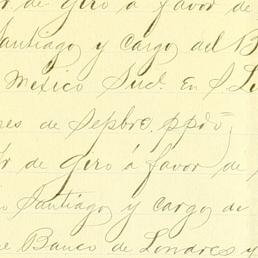 r de giro á favor de
Santiago y cargo del B
Mexico Sucl. En S. L
es de Sepbre. ppdo
ir de giro á favor de
o Santiago y cargo de
e Banco de Londres y